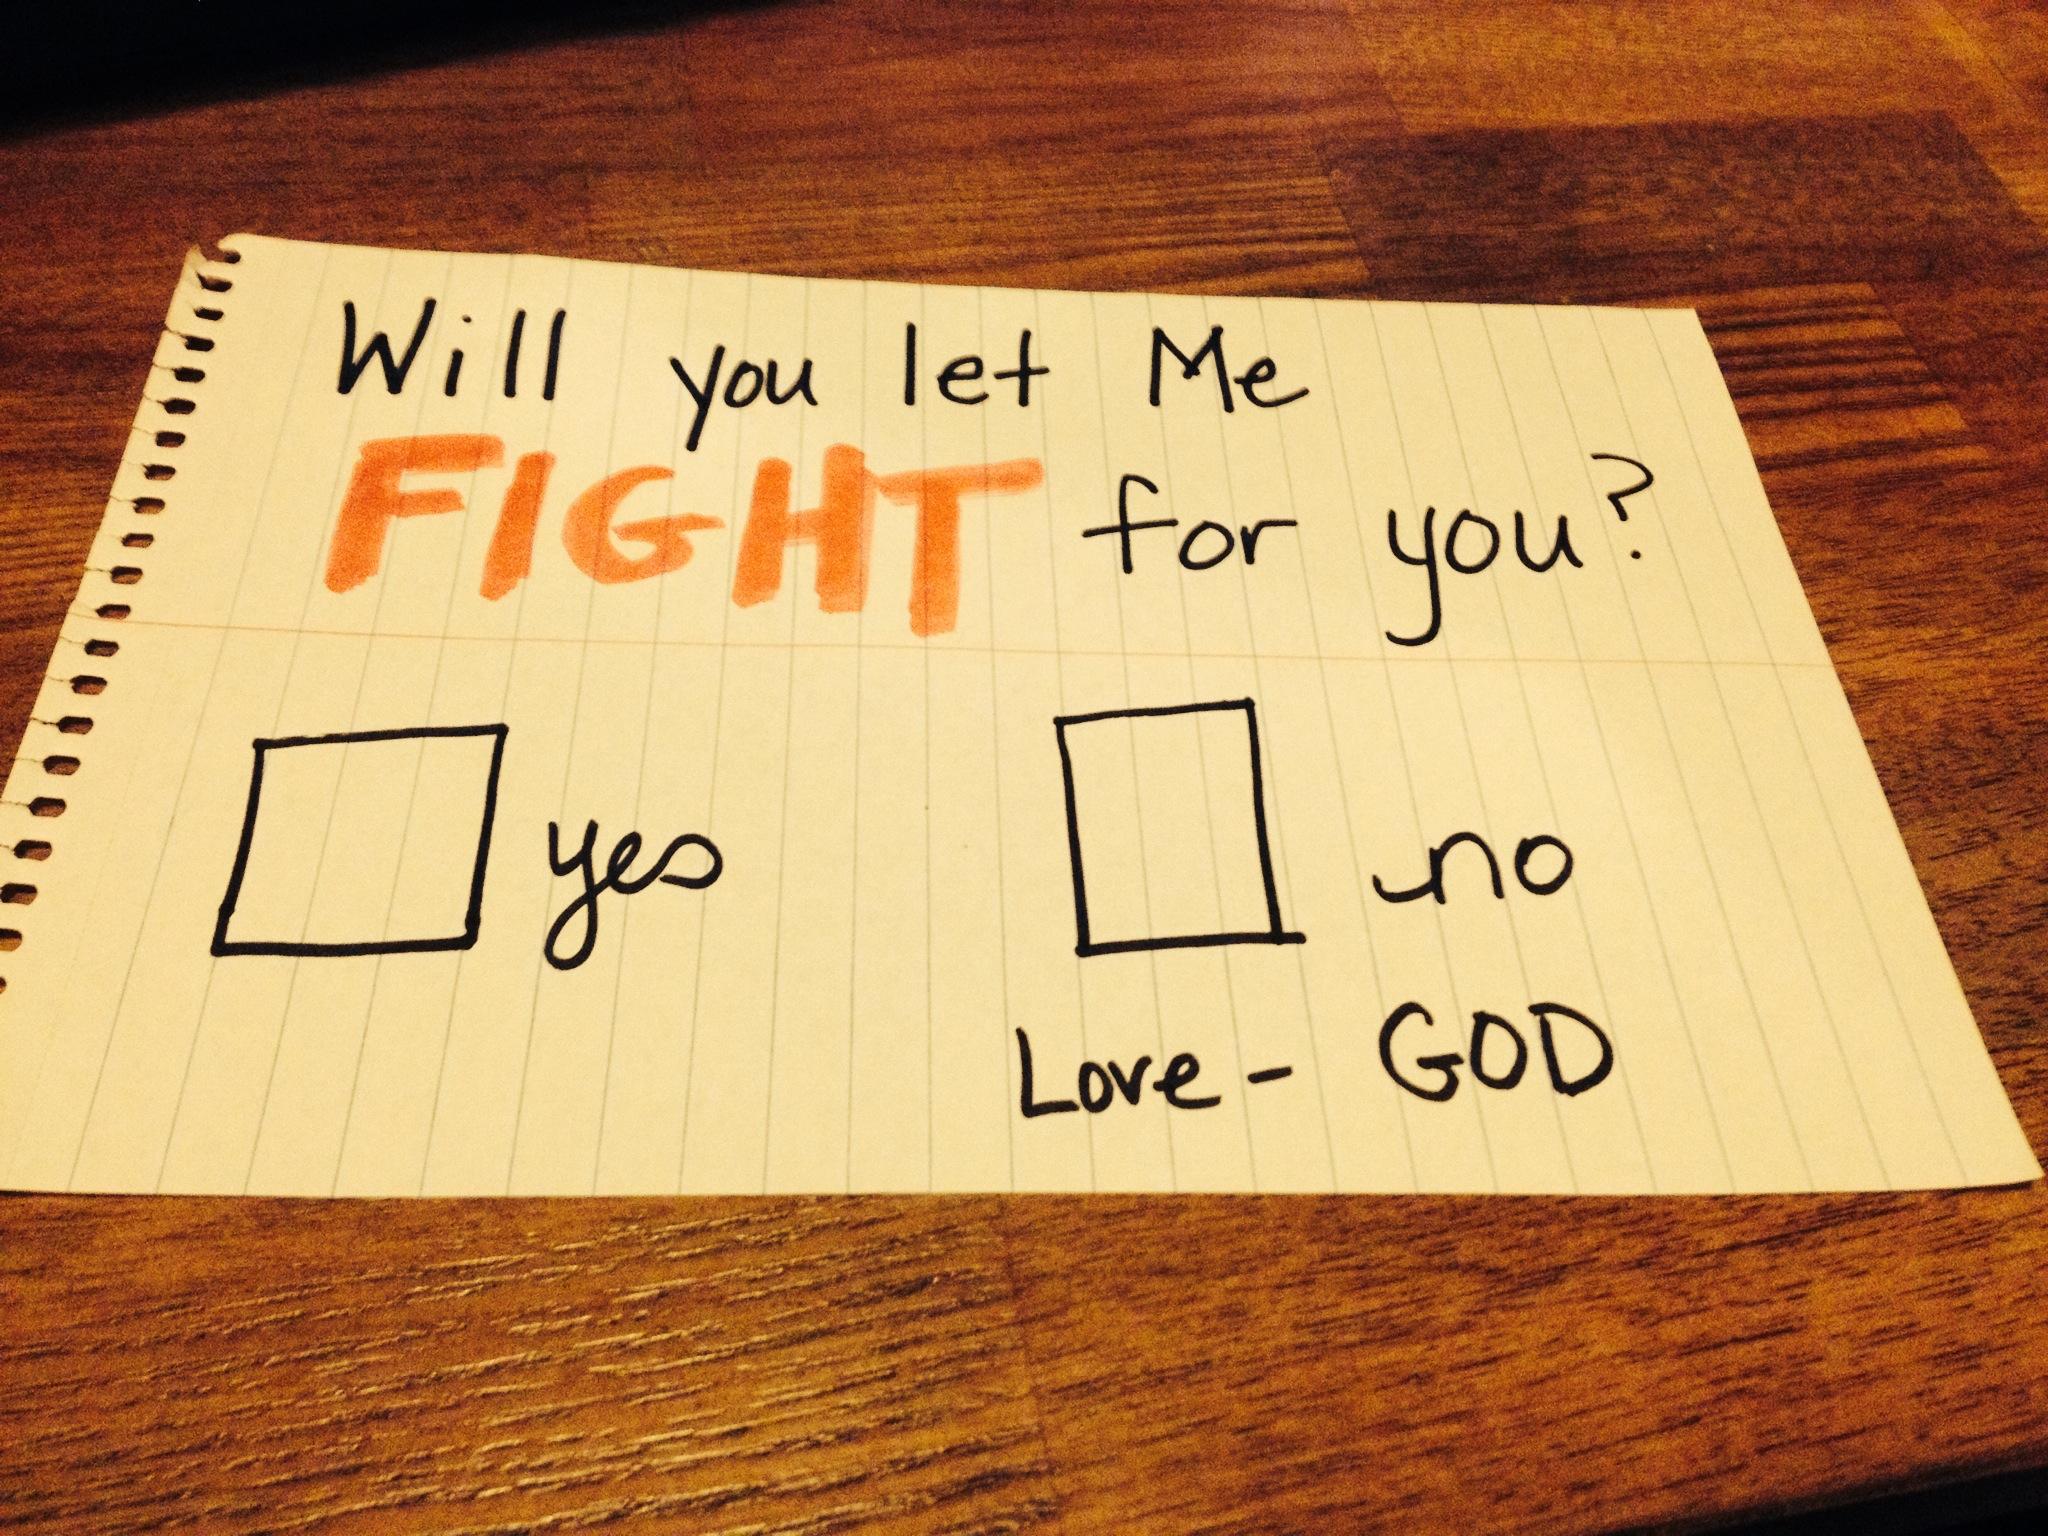 Will you let Me
FIGHT for you?
yes no
Love - GOD